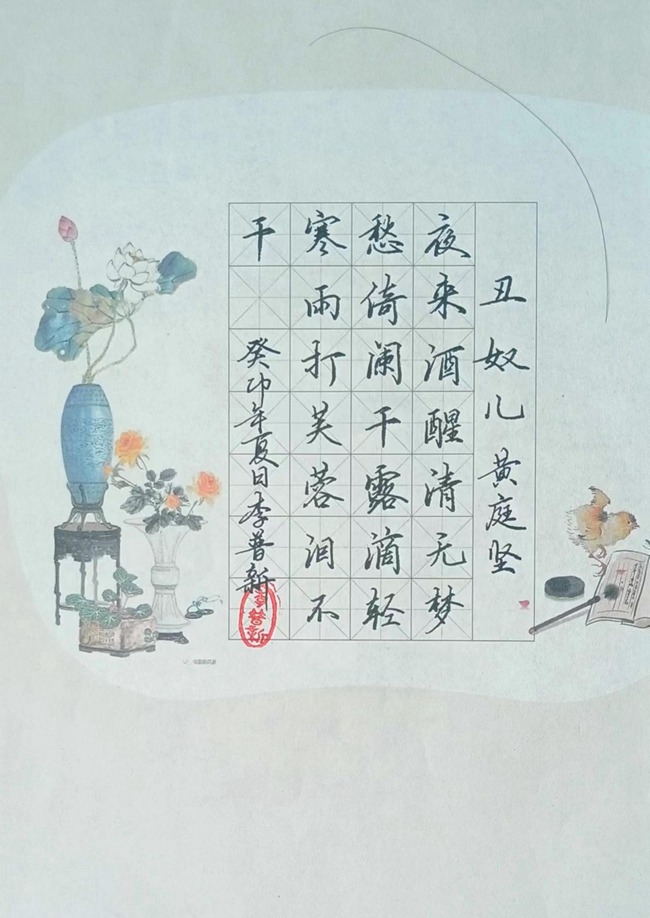 丑奴儿 黄庭坚
夜来酒醒清无梦
愁倚阑干露滴轻
寒雨打芙蓉泪不
干
癸卯年夏日李普新
李普新